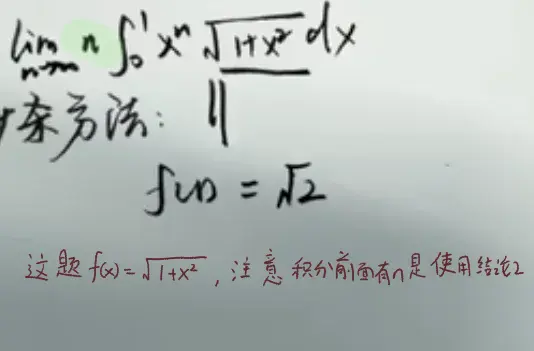 lim n→∞ n ∫₀¹ xⁿ √(1+x²) dx
杂方法:
f(1) = √2
这题 f(x)=√(1+x²), 注意 积分前面有n是使用结论2